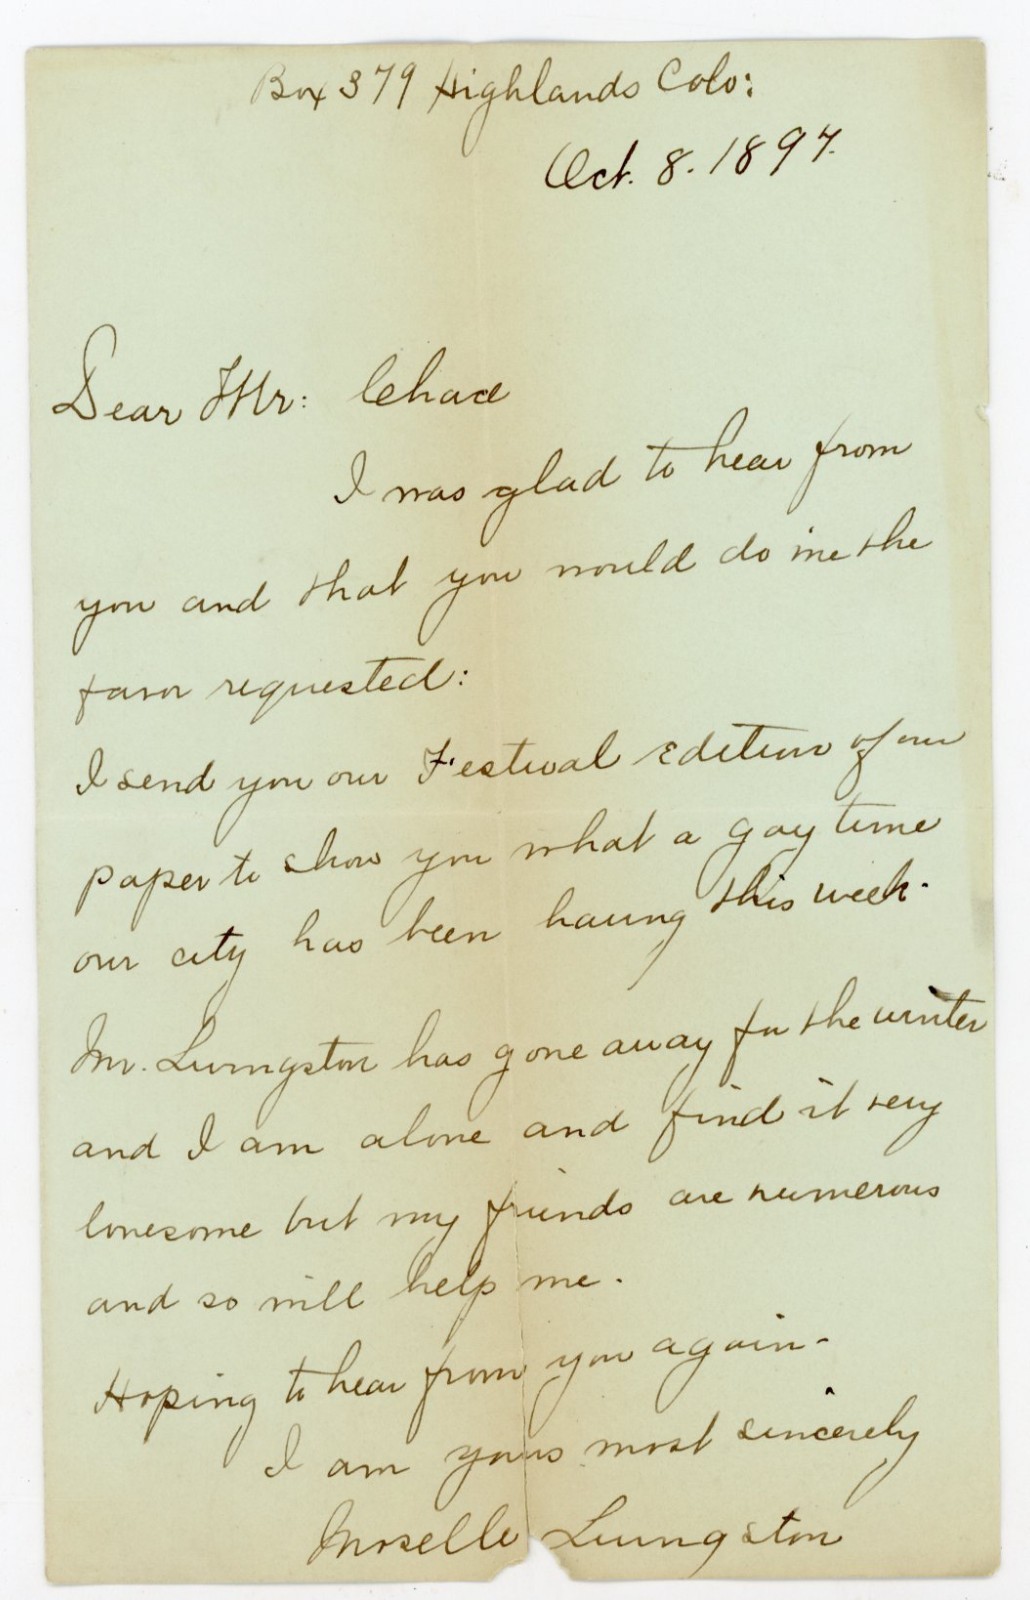 Box 379 Highlands Colo:
Oct. 8. 1897.
Dear Mr: Chace
I was glad to hear from
you and that you would do me the
favor requested:
I send you our Festival Edition of our
paper to show you what a gay time
our city has been having this week.
Mr. Livingston has gone away for the winter
and I am alone and find it very
lonesome but my friends are numerous
and so will help me.
Hoping to hear from you again-
I am yours most sincerely
Moselle Livingston